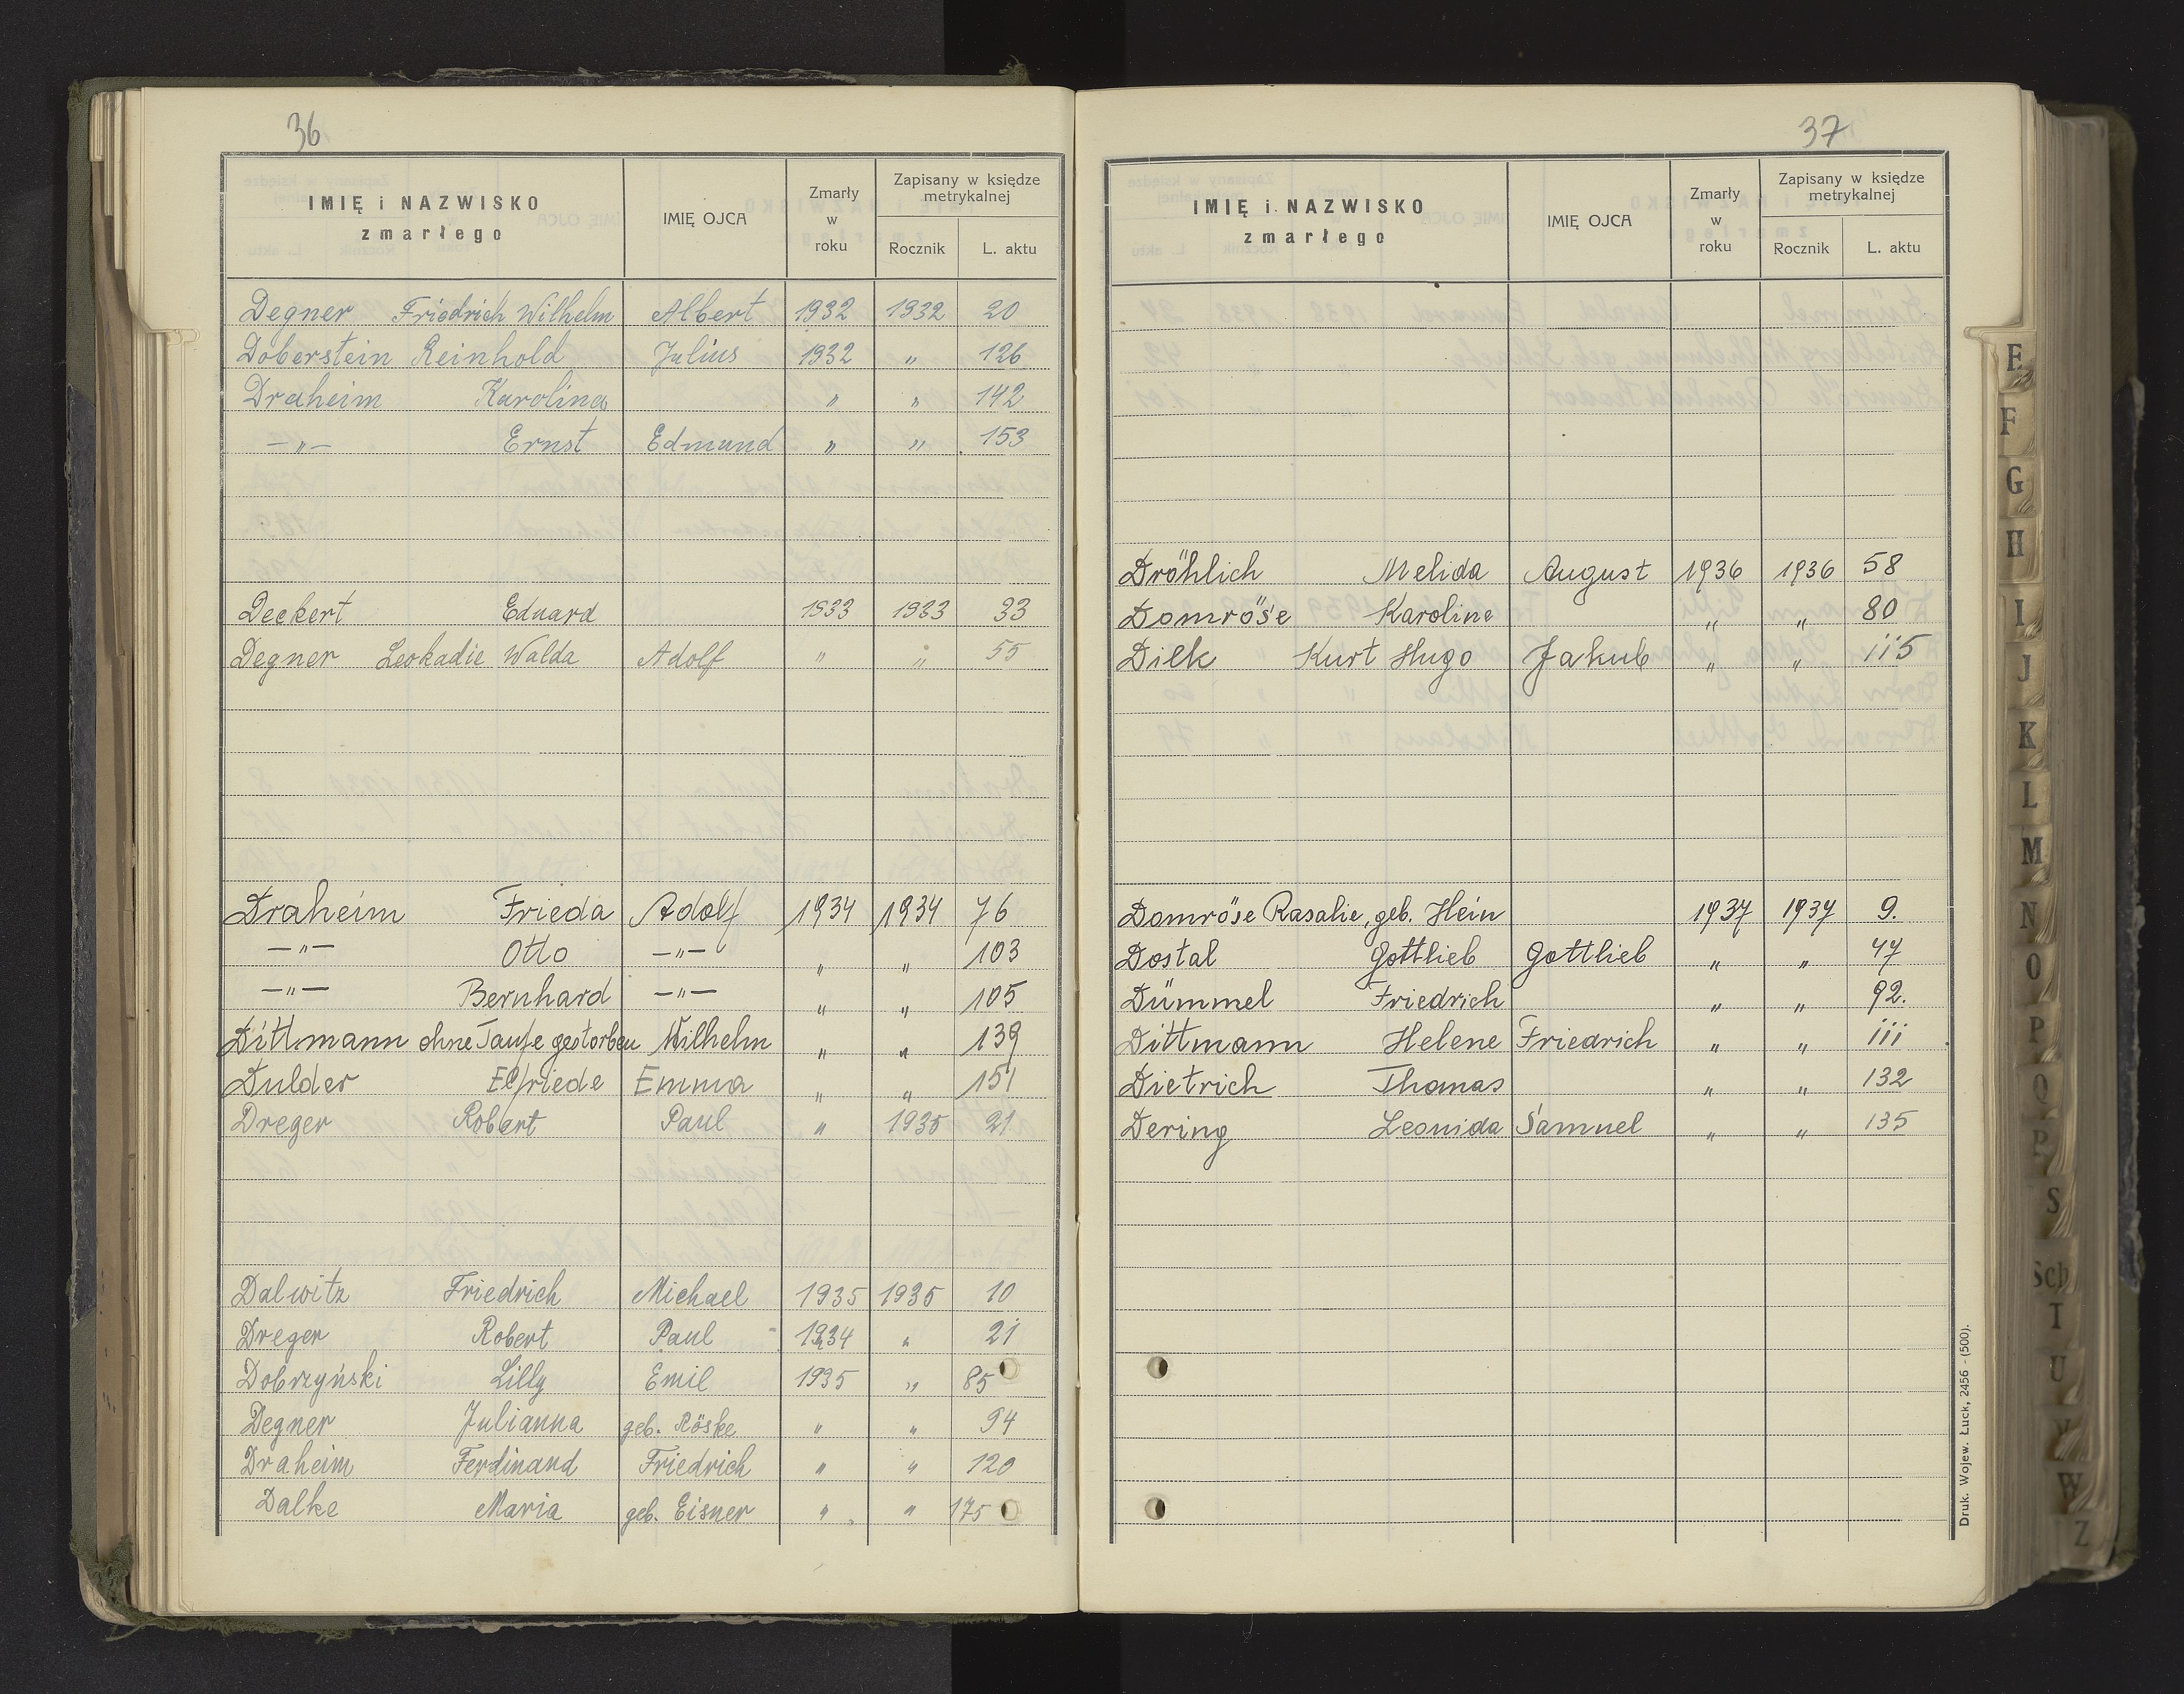 36
IMIĘ i NAZWISKO zmarłego | IMIĘ OJCA | Zmarły w roku | Zapisany w księdze metrykalnej
Rocznik | L. aktu
Degner Friedrich Wilhelm | Albert | 1932 | 1932 | 20
Doberstein Reinhold | Julius | 1932 | " | 126
Draheim Karolina | | " | " | 142
—"— Ernst | Edmund | " | " | 153
Deckert Eduard | | 1933 | 1933 | 33
Degner Leokadie Walda | Adolf | " | " | 55
Draheim Frieda | Adolf | 1934 | 1934 | 76
—"— Otto | —"— | " | " | 103
—"— Bernhard | —"— | " | " | 105
Dittmann ohne Taufe gestorben | Wilhelm | " | " | 139
Dulder Elfriede | Emma | " | " | 151
Dreger Robert | Paul | " | 1935 | 21
Dalwitz Friedrich | Michael | 1935 | 1935 | 10
Dreger Robert | Paul | 1934 | " | 21
Dobrzyński Lilly | Emil | 1935 | " | 85
Degner Julianna | geb. Röske | " | " | 94
Draheim Ferdinand | Friedrich | " | " | 120
Dalke Maria | geb. Eisner | " | " | 175
37
IMIĘ i NAZWISKO zmarłego | IMIĘ OJCA | Zmarły w roku | Zapisany w księdze metrykalnej
Rocznik | L. aktu
Dröhlich Melida | August | 1936 | 1936 | 58
Domröse Karoline | | " | " | 80
Dilk Kurt Hugo | Jakub | " | " | 115
Domröse Rasalie, geb. Hein | | 1937 | 1937 | 9.
Dostal Gottlieb | Gottlieb | " | " | 47
Dümmel Friedrich | | " | " | 92.
Dittmann Helene | Friedrich | " | " | 111
Dietrich Thomas | | " | " | 132
Dering Leonida | Samuel | " | " | 135
Druk. Wojew. Łuck, 2456 - (500).
E
F
G
H
I
J
K
L
M
N
O
P
Q
R
S
Sch
T
U
V
W
Z